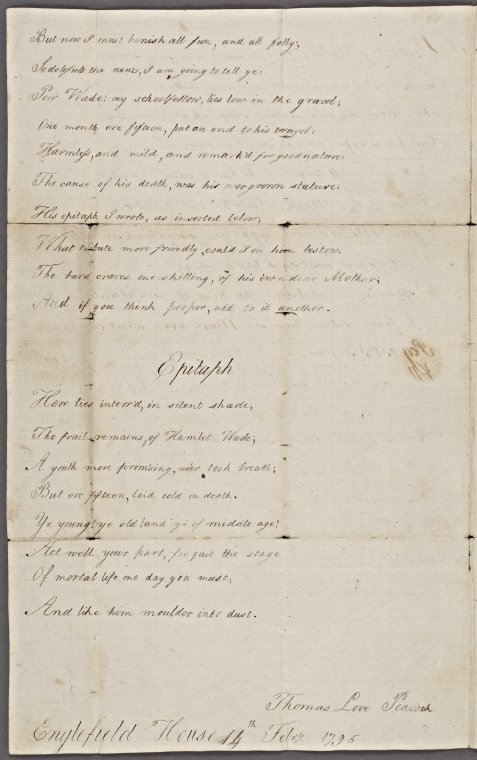 But now I must banish all fun, and all folly;
So doleful's the news, I am going to tell ye:
Poor Wade! my schoolfellow, lies low in the gravel;
One month ere fifteen, put an end to his travel:
Harmless, and mild, and remark'd for goodnature:
The cause of his death, was his overgrown stature:
His epitaph I wrote, as inserted below;
What tribute more friendly, could I on him bestow.
The bard craves one shilling, of his own dear Mother;
And if you think proper, add to it another.
Epitaph
Here lies interr'd, in silent shade,
The frail remains, of Hamlet Wade;
A youth more promising, neer took breath;
But ere fifteen, laid cold in death.
Ye young! ye old! and ye of middle age!
Act well your part, for quit the stage
Of mortal life one day you must,
And like him moulder into dust.
Thomas Love Peacock
Englefield House 14th Febry 1795